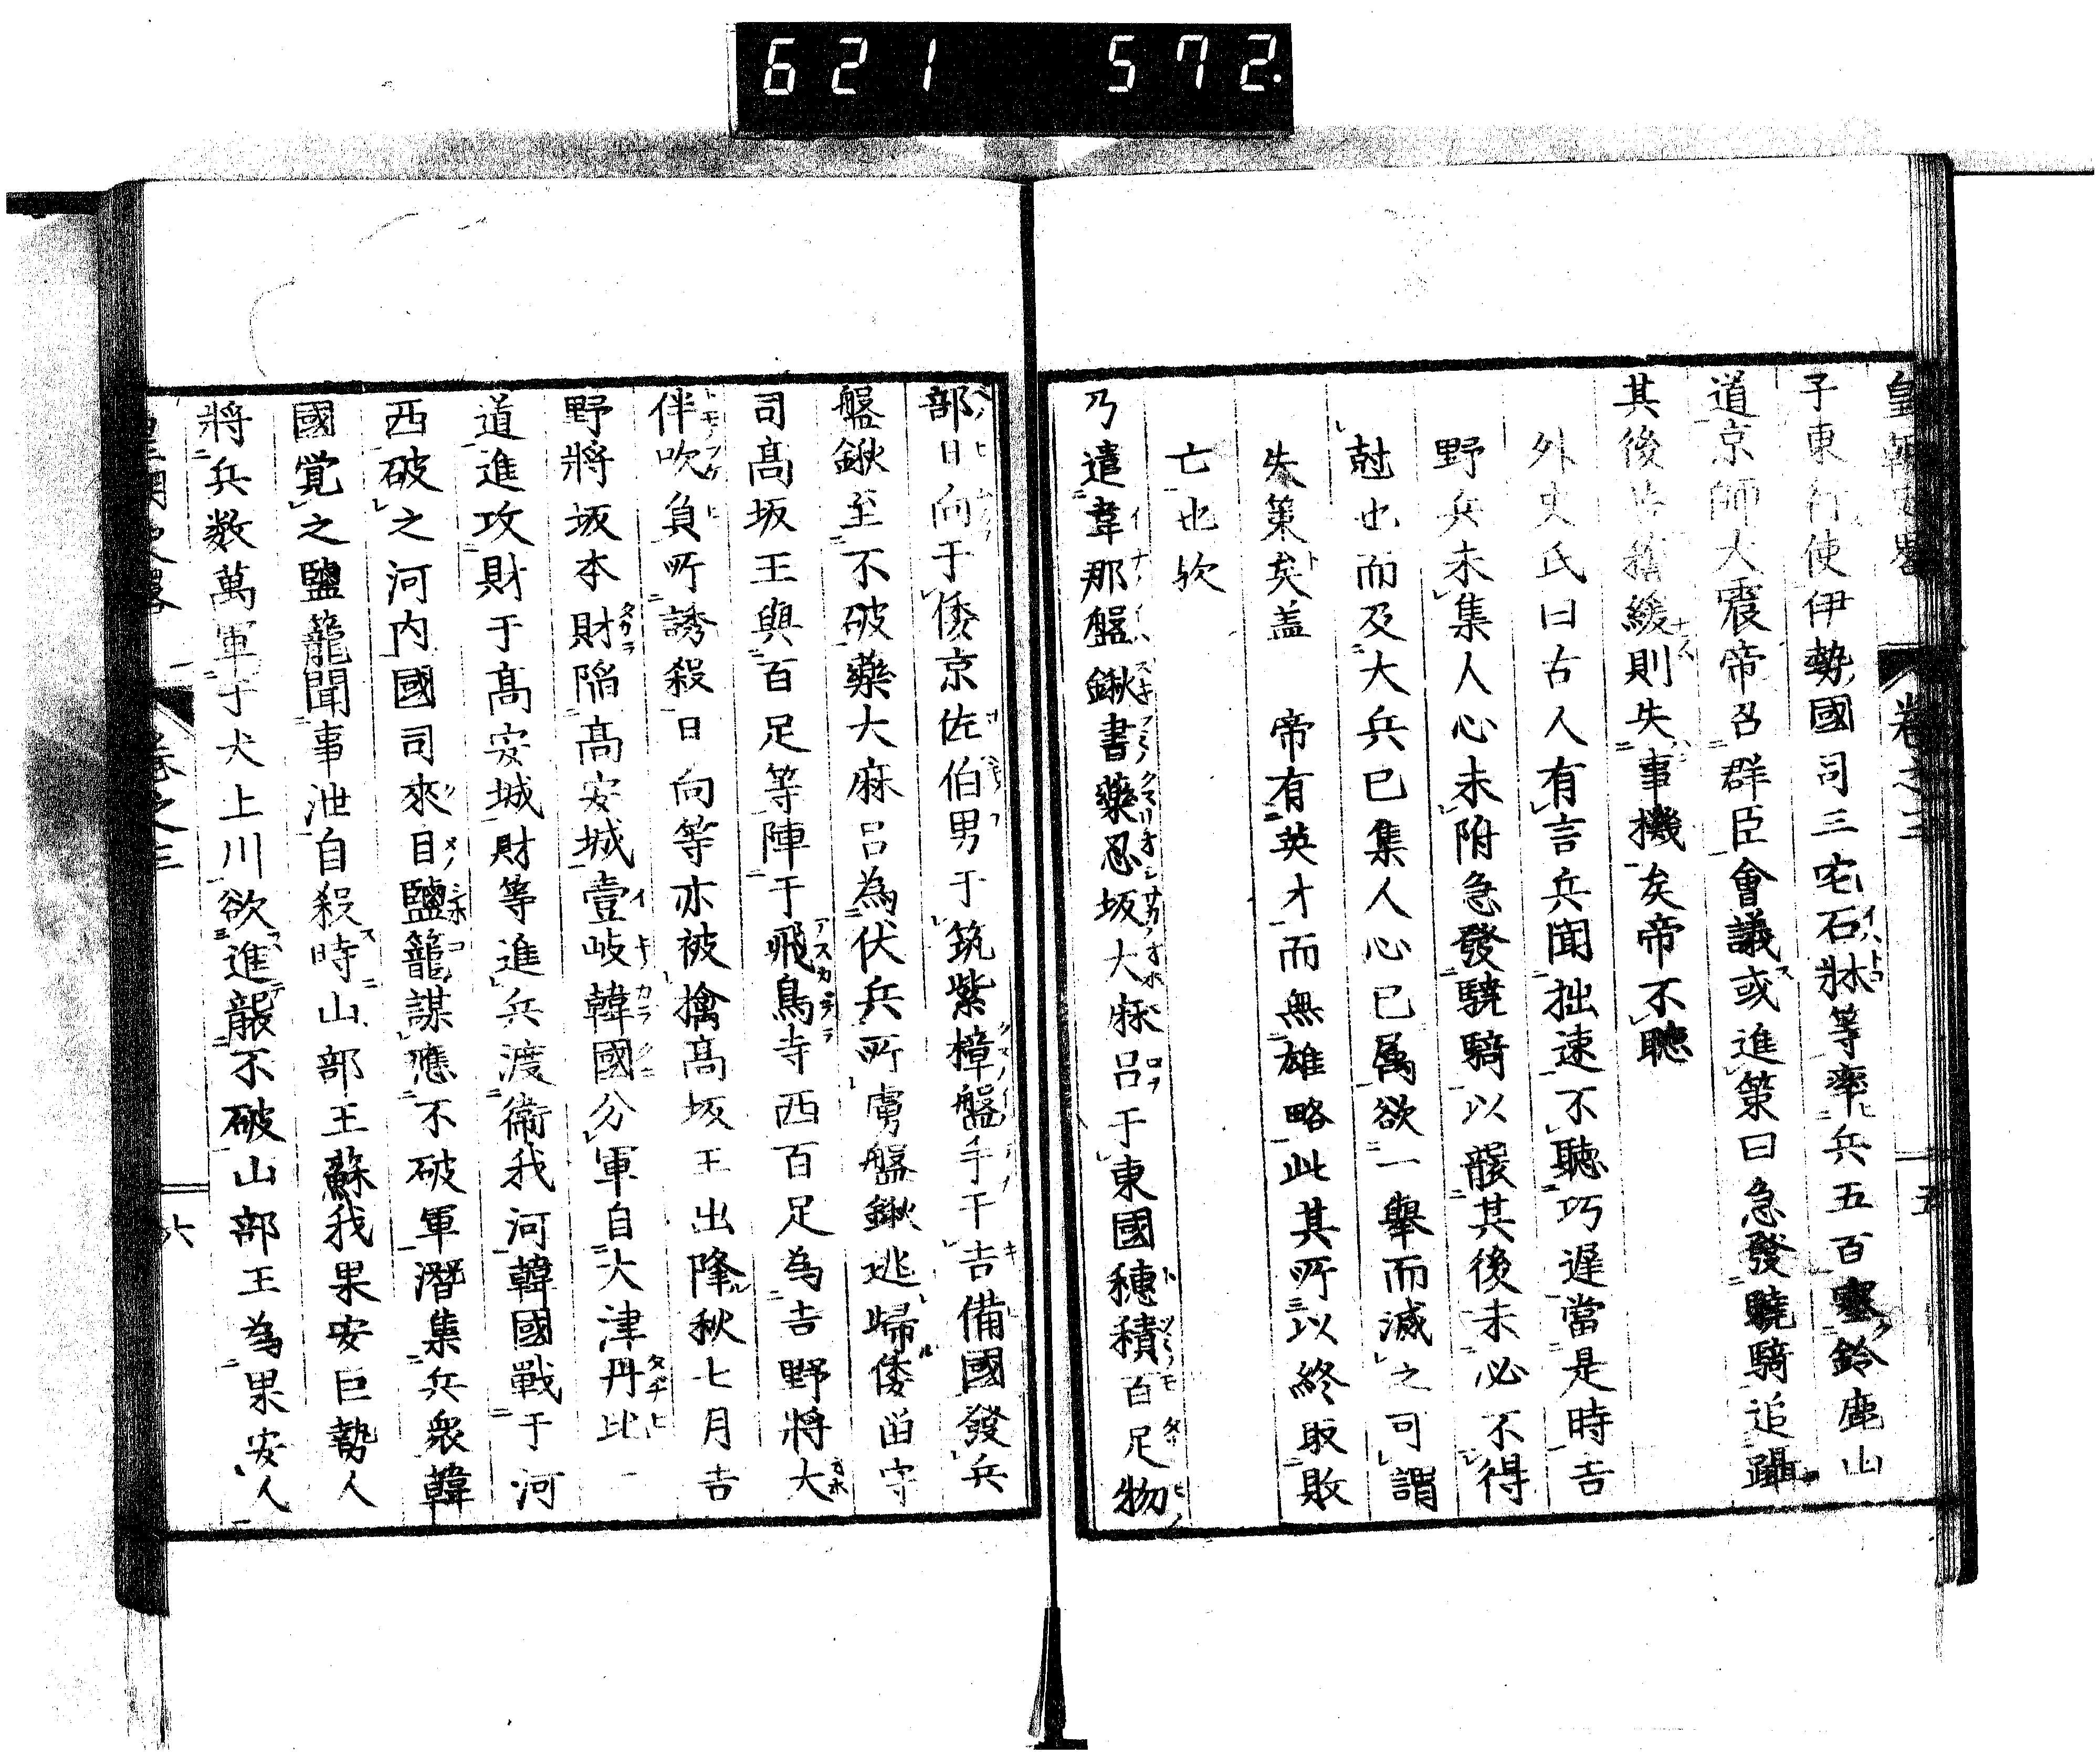 621 572.
皇朝史畧 卷之三 五
子東行使伊勢國司三宅石牀等率兵五百塞鈴鹿山
道京師大震帝召群臣會議或進策曰急發驍騎追躡
其後若猶緩則失事機矣帝不聽
外史氏曰古人有言兵聞拙速不聽巧遲當是時吉
野兵未集人心未附急發驍騎以襲其後未必不得
尅也而及大兵已集人心已属欲一舉而滅之可謂
失策矣盖 帝有英才而無雄略此其所以終取敗
亡也欤
乃遣韋那盤鍬書藥忍坂大麻呂于東國穗積百足物
部日向于倭京佐伯男于筑紫樟盤手于吉備國發兵
盤鍬至不破藥大麻呂為伏兵所虜盤鍬逃歸倭留守
司髙坂王與百足等陣于飛鳥寺西百足為吉野將大
伴吹負所誘殺日向等亦被擒髙坂王出降秋七月吉
野將坂本財陷髙安城壹岐韓國分軍自大津丹比一
道進攻財于髙安城財等進兵渡衞我河韓國戰于河
西破之河内國司來目鹽籠謀應不破軍潛集兵衆韓
國覚之鹽籠聞事泄自殺時山部王蘇我果安巨勢人
將兵数萬軍于犬上川欲進襲不破山部王為果安人
皇朝史畧 卷之三 六